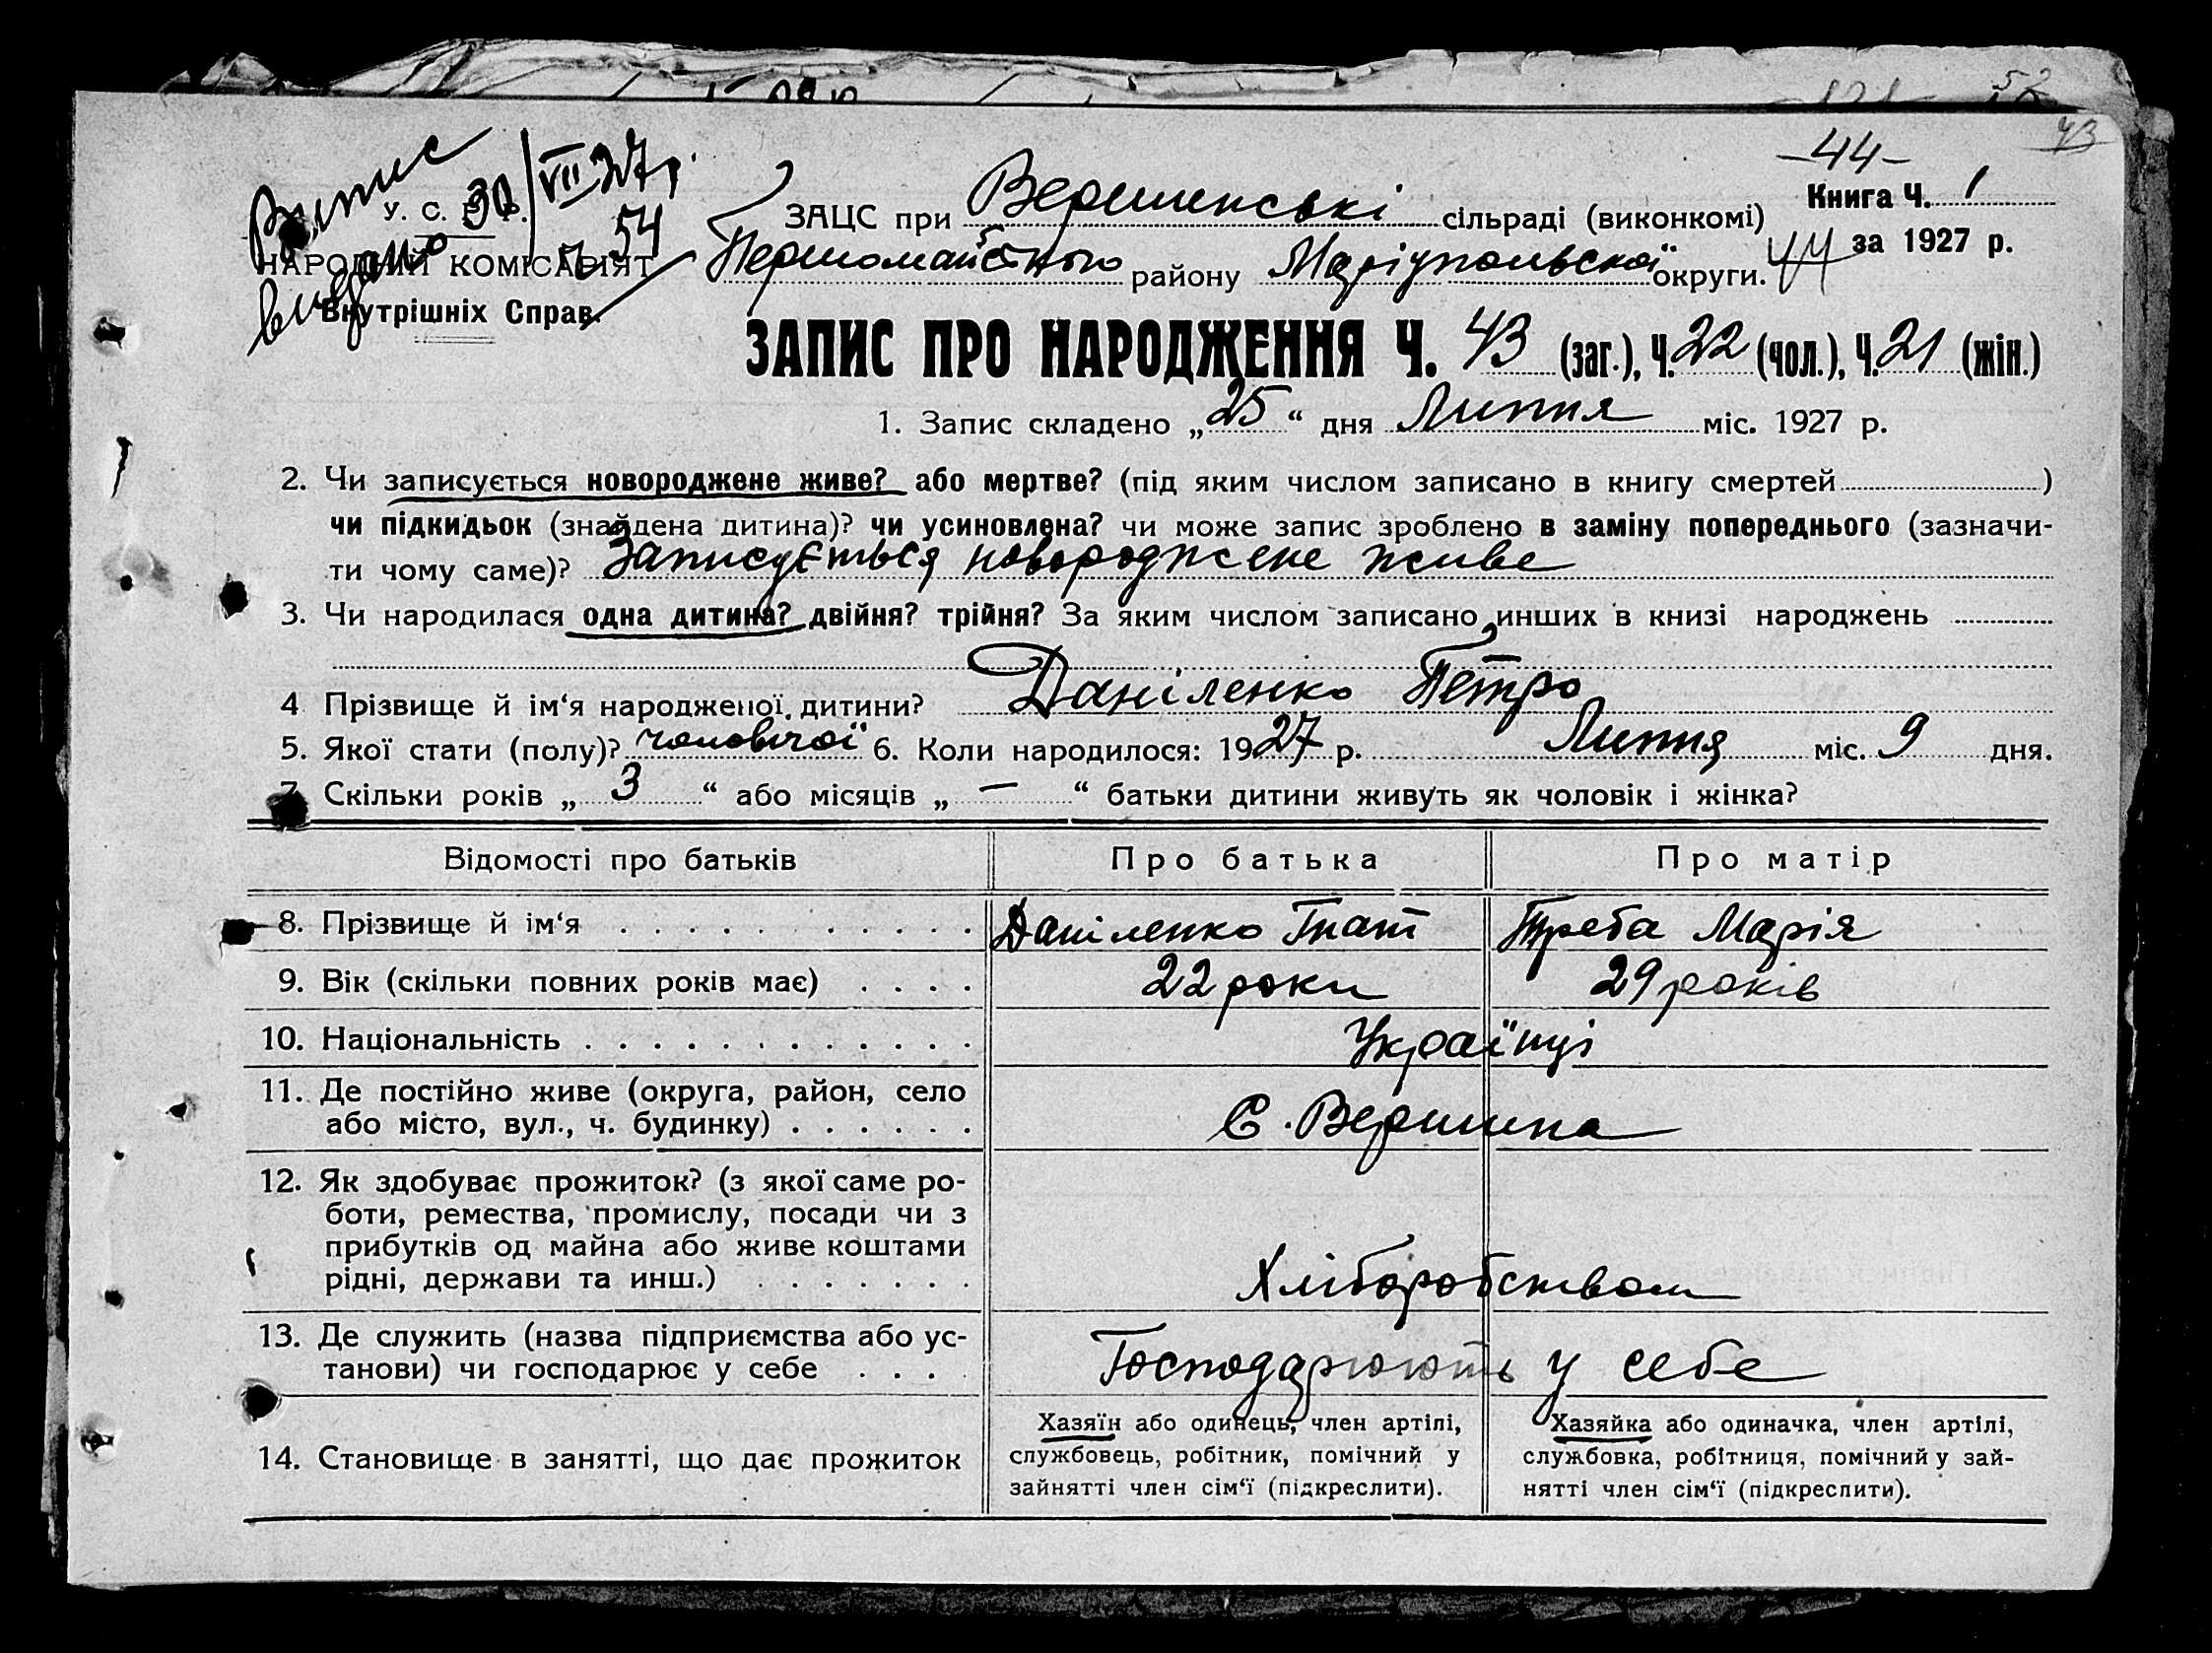 52
43
-44-
Випис
видано 30/VII 27 р.
№ 54
У. С. Р. Р.
НАРОДНИЙ КОМІСАРІЯТ
Внутрішніх Справ.
ЗАЦС при Вершинські сільраді (виконкомі)
Книга Ч. 1
Первомайського району Маріупольської округи.
44
за 1927 р.
ЗАПИС ПРО НАРОДЖЕННЯ Ч. 43 (заг.), Ч. 22 (чол.), Ч. 21 (жін.)
1. Запис складено „25“ дня Липня міс. 1927 р.
2. Чи записується новороджене живе? або мертве? (під яким числом записано в книгу смертей )
чи підкидьок (знайдена дитина)? чи усиновлена? чи може запис зроблено в заміну попереднього (зазначи-
ти чому саме)? Записується новороджене живе
3. Чи народилася одна дитина? двійня? трійня? За яким числом записано инших в книзі народжень
4 Прізвище й ім‘я народженої дитини? Даніленко Петро
5. Якої стати (полу)? чоловічої 6. Коли народилося: 1927 р. Липня міс. 9 дня.
7. Скільки років „ 3 “ або місяців „ — “ батьки дитини живуть як чоловік і жінка?
Відомості про батьків Про батька Про матір
8. Прізвище й ім‘я . . . . . . . . . . . Даніленко Гнат Треба Марія
9. Вік (скільки повних років має) . . . . 22 роки 29 років
10. Національність . . . . . . . . . . . . Українці
11. Де постійно живе (округа, район, село
або місто, вул., ч. будинку) . . . . . . С. Вершина
12. Як здобуває прожиток? (з якої саме ро-
боти, ремества, промислу, посади чи з
прибутків од майна або живе коштами
рідні, держави та инш.) . . . . . . . Хліборобством
13. Де служить (назва підприємства або ус-
танови) чи господарює у себе . . . Господарюють у себе
14. Становище в занятті, що дає прожиток
Хазяїн або одинець, член артілі,
службовець, робітник, помічний у
зайнятті член сім‘ї (підкреслити).
Хазяйка або одиначка, член артілі,
службовка, робітниця, помічний у зай-
нятті член сім‘ї (підкреслити).